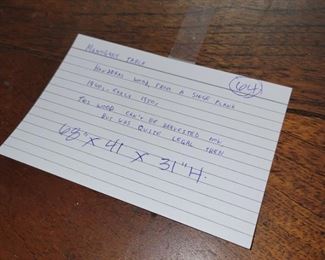 MAHOGANY TABLE
64
HONDURAS WOOD, FROM A SINGLE PLANK
EARLY 1800s
THIS WOOD CAN'T BE HARVESTED NOW
BUT WAS QUITE LEGAL THEN
68" X 41 X 31" H.